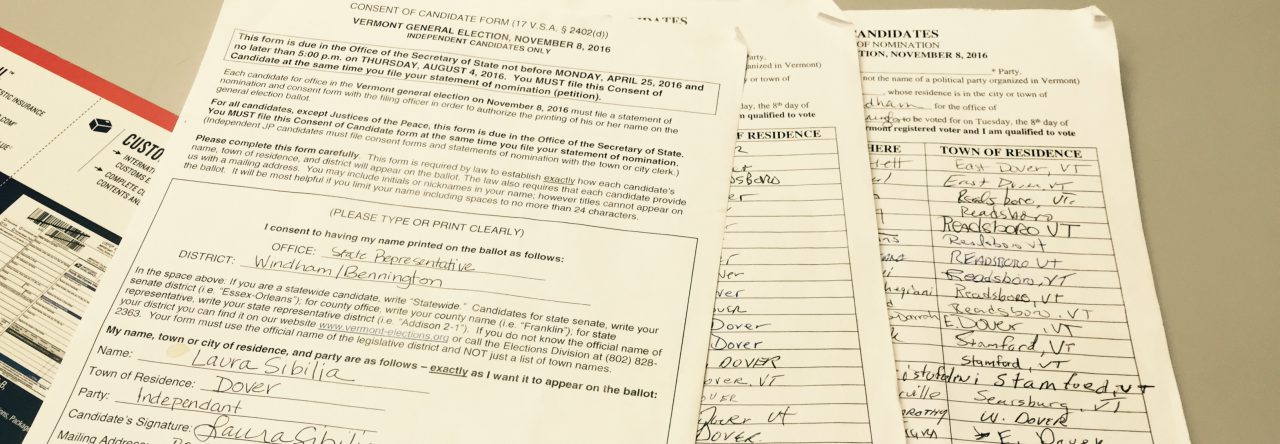 CONSENT OF CANDIDATE FORM (17 V.S.A. § 2402(d))
VERMONT GENERAL ELECTION, NOVEMBER 8, 2016
INDEPENDENT CANDIDATES ONLY
This form is due in the Office of the Secretary of State not before MONDAY, APRIL 25, 2016 and
no later than 5:00 p.m. on THURSDAY, AUGUST 4, 2016. You MUST file this Consent of
Candidate at the same time you file your statement of nomination (petition).
Each candidate for office in the Vermont general election on November 8, 2016 must file a statement of
nomination and consent form with the filing officer in order to authorize the printing of his or her name on the
general election ballot.
For all candidates, except Justices of the Peace, this form is due in the Office of the Secretary of State.
You MUST file this Consent of Candidate form at the same time you file your statement of nomination.
(Independent JP candidates must file consent forms and statements of nomination with the town or city clerk.)
Please complete this form carefully. This form is required by law to establish exactly how each candidate's
name, town of residence, and district will appear on the ballot. The law also requires that each candidate provide
us with a mailing address. You may include initials or nicknames in your name; however titles cannot appear on
the ballot. It will be most helpful if you limit your name including spaces to no more than 24 characters.
(PLEASE TYPE OR PRINT CLEARLY)
I consent to having my name printed on the ballot as follows:
OFFICE: State Representative
DISTRICT: Windham/Bennington
In the space above: If you are a statewide candidate, write "Statewide." Candidates for state senate, write your
senate district (i.e. "Essex-Orleans"); for county office, write your county name (i.e. "Franklin"); for state
representative, write your state representative district (i.e. "Addison 2-1"). If you do not know the official name of
your district you can find it on our website www.vermont-elections.org or call the Elections Division at (802) 828-
2363. Your form must use the official name of the legislative district and NOT just a list of town names.
My name, town or city of residence, and party are as follows – exactly as I want it to appear on the ballot:
Name: Laura Sibilia
Town of Residence: Dover
Party: Independant
Candidate's Signature: Laura Sibili
Mailing Address:
Party.
organized in Vermont)
or town of
day, the 8th day of
am qualified to vote
OF RESIDENCE
dsboro
ver
ver
OVER
Dover
Dover
DOVER
over, VT
OVER
Dover VT
DOVER
CANDIDATES
OF NOMINATION
TION, NOVEMBER 8, 2016
* Party.
not the name of a political party organized in Vermont)
, whose residence is in the city or town of
dham for the office of
to be voted for on Tuesday, the 8th day of
rmont registered voter and I am qualified to vote
HERE TOWN OF RESIDENCE
East Dover, VT
East Dover, VT
Readsboro, VT
Readsboro
READSBORO VT
Readsboro Vt
READSBORO VT
Readsboro, VT
Readsboro, VT
Readsboro, VT
E. Dover, VT
Stamford, VT
Stamford, VT
Stamford, VT
Searsburg, VT
W. DOVER
E. Dover
TIC INSURANCE
.COM
CUSTO
→ INTERNATI
CUSTOMS E
→ COMPLETE C
CONTENTS AND